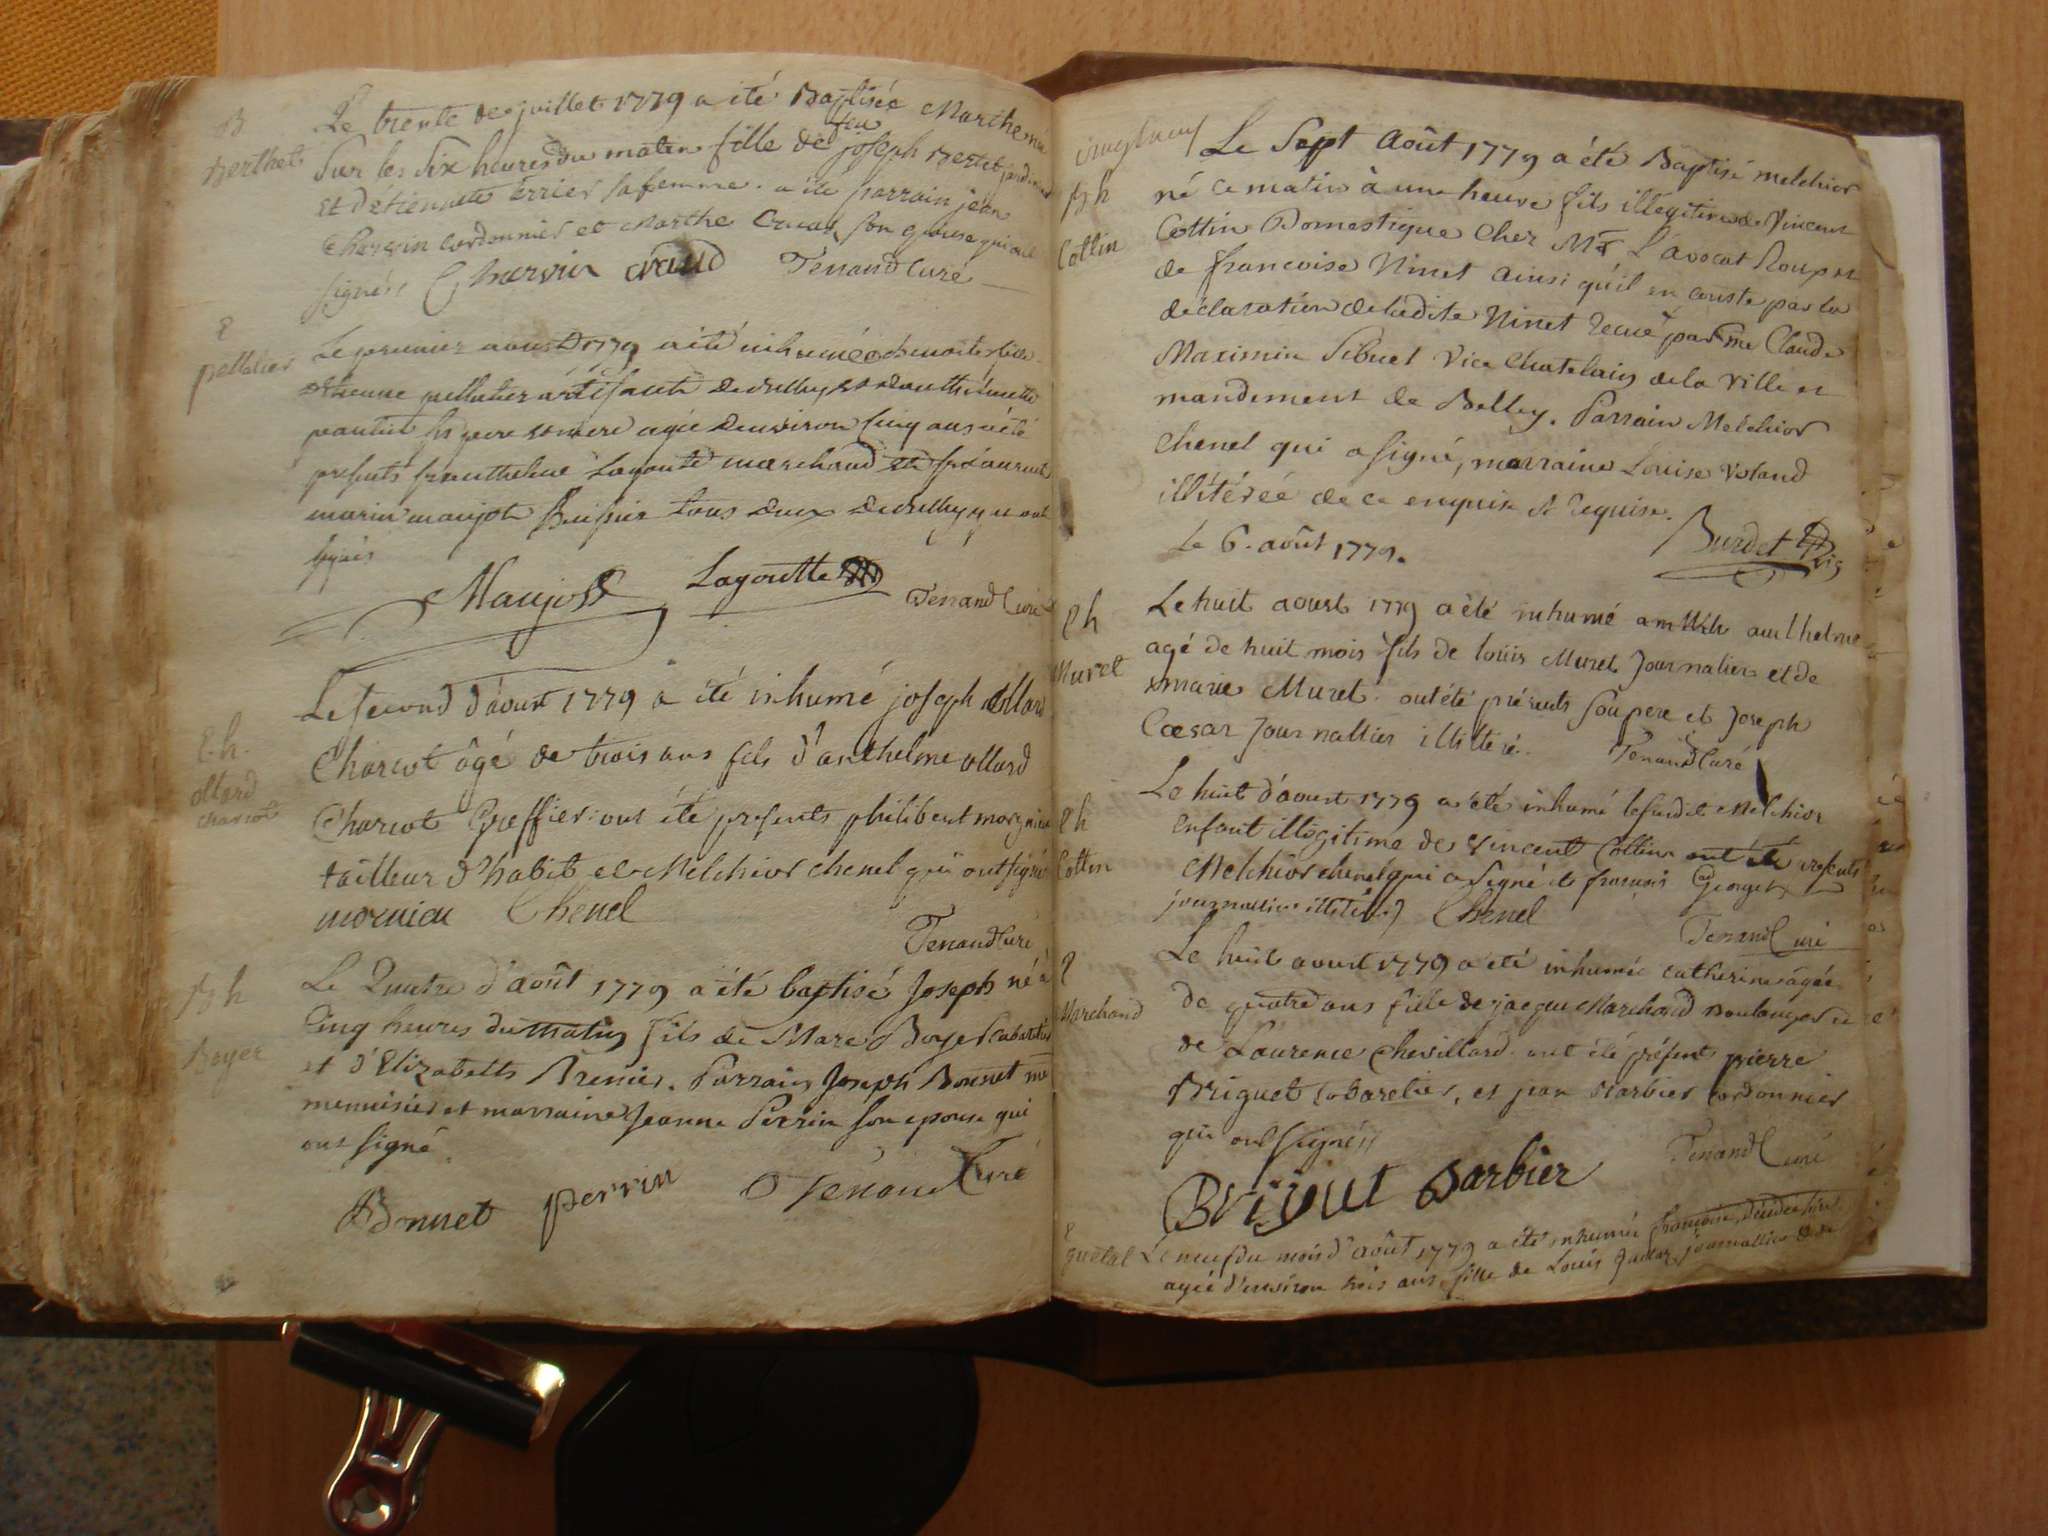 B
Berthet
Le trente de juillet 1779 a été Baptisée Marthe née
feu
sur les six heures du matin fille de joseph
et d'étiennette érrier sa femme. a été parrain jean
Chervin cordonnier et Marthe son epouse qui ont
signés Chervin craud Tenand Curé
E
pellatier
Le premier aoust 1779 a été inhumée fille
étienne pellatier artisant de Belley et d'anthelmette
ses pere et mere agée d'environ cinq ans a été
presents francthelme Lagoutte marchand et
marin maujot huissier tous deux de Belley qui ont
signés
Maujot Lagoutte Tenand Curé
E. h.
ollard
charcot
Le second d'aoust 1779 a été inhumé joseph ollard
Charcot âgé de trois ans fils d'anthelme ollard
Charcot Greffier. ont été presents philibert mornieu
tailleur d'habit et Melchior chenel qui ont signé
mornieu Chenel
Tenand Curé
B h
Boyer
Le Quatre d'août 1779 a été baptisé Joseph né à
Cinq heures du matin fils de Marc Boyer Cabaretier
et d'Elizabeth Brenier. Parrain Joseph Bonnet me
menuisier et marraine Jeanne Perrin son epouse qui
ont signé.
Bonnet perrin Tenand Curé
B h
Cottin
Le Sept Août 1779 a été Baptisé melchior
né ce matin à une heure fils illégitime de Vincent
Cottin Domestique Chez Mr L'avocat Roup et
de francoise Ninet ainsi qu'il en conste par la
déclaration de ladite Ninet recue par me Claude
Maximin Sibuet Vice Chatelain de la Ville et
mandement de Belley. Parrain Melchior
Chenel qui a signé, marraine Louise Voland
illitérée de ce enquise et requise.
Le 6. août 1779. Burdet Vic
E h
Muret
Le huit aoust 1779 a été inhumé anthelme
agé de huit mois fils de louis Muret Journalier et de
marie Muret. ont été présents son pere et Joseph
Cæsar Journallier illitteré. Tenand Curé
E h
Cottin
Le huit d'aoust 1779 a été inhumé le susdit Melchior
Enfant illégitime de Vincent Cottin ont été presents
Melchior chenel qui a signé et francois Georget
journallier illitéré Chenel Tenand Curé
E
Marchand
Le huit aoust 1779 a été inhumée catherine agée
de quatre ans fille de jacque Marchand Boulanger et
de Laurence Chevillard. ont été présent pierre
Briguet Cabaretier, et jean Barbier cordonnier
qui ont signés Tenand Curé
Briguet Barbier
E
guelat
Le neuf du mois d'août 1779 a été inhumée francoise,
agée d'environ trois ans fille de Louis journallier et de